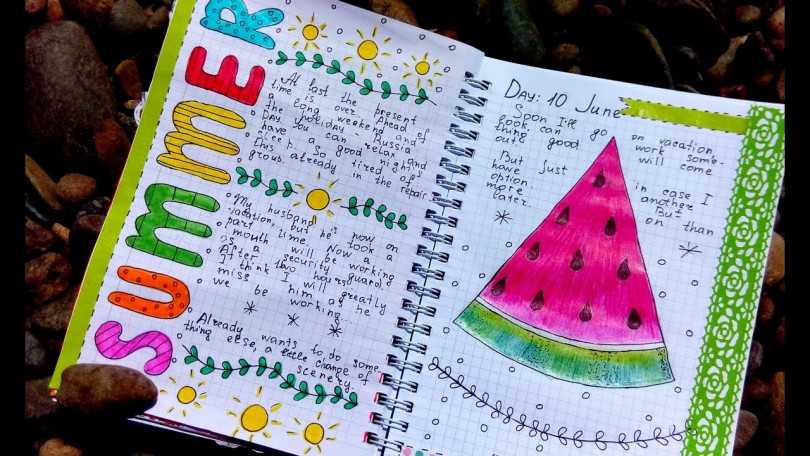 SUMMER
At last the present
time is over. Ahead of
the long weekend and
the holiday Russia
Day. You can relax and
have a good night's
sleep. So tired of
this already in the repair
group.
My husband is now on
vacation, but he took a
part time. Now a
month will be working
as a security guard.
After two hours
I think I will greatly
miss him as he
we be working.
Already wants to do some
thing else, a little change of
scenery.
DAY: 10 June
Soon I'll go on vacation
look, can work some-
thing good will come
out!
But just in case I
have another
option. But
more on than
later.